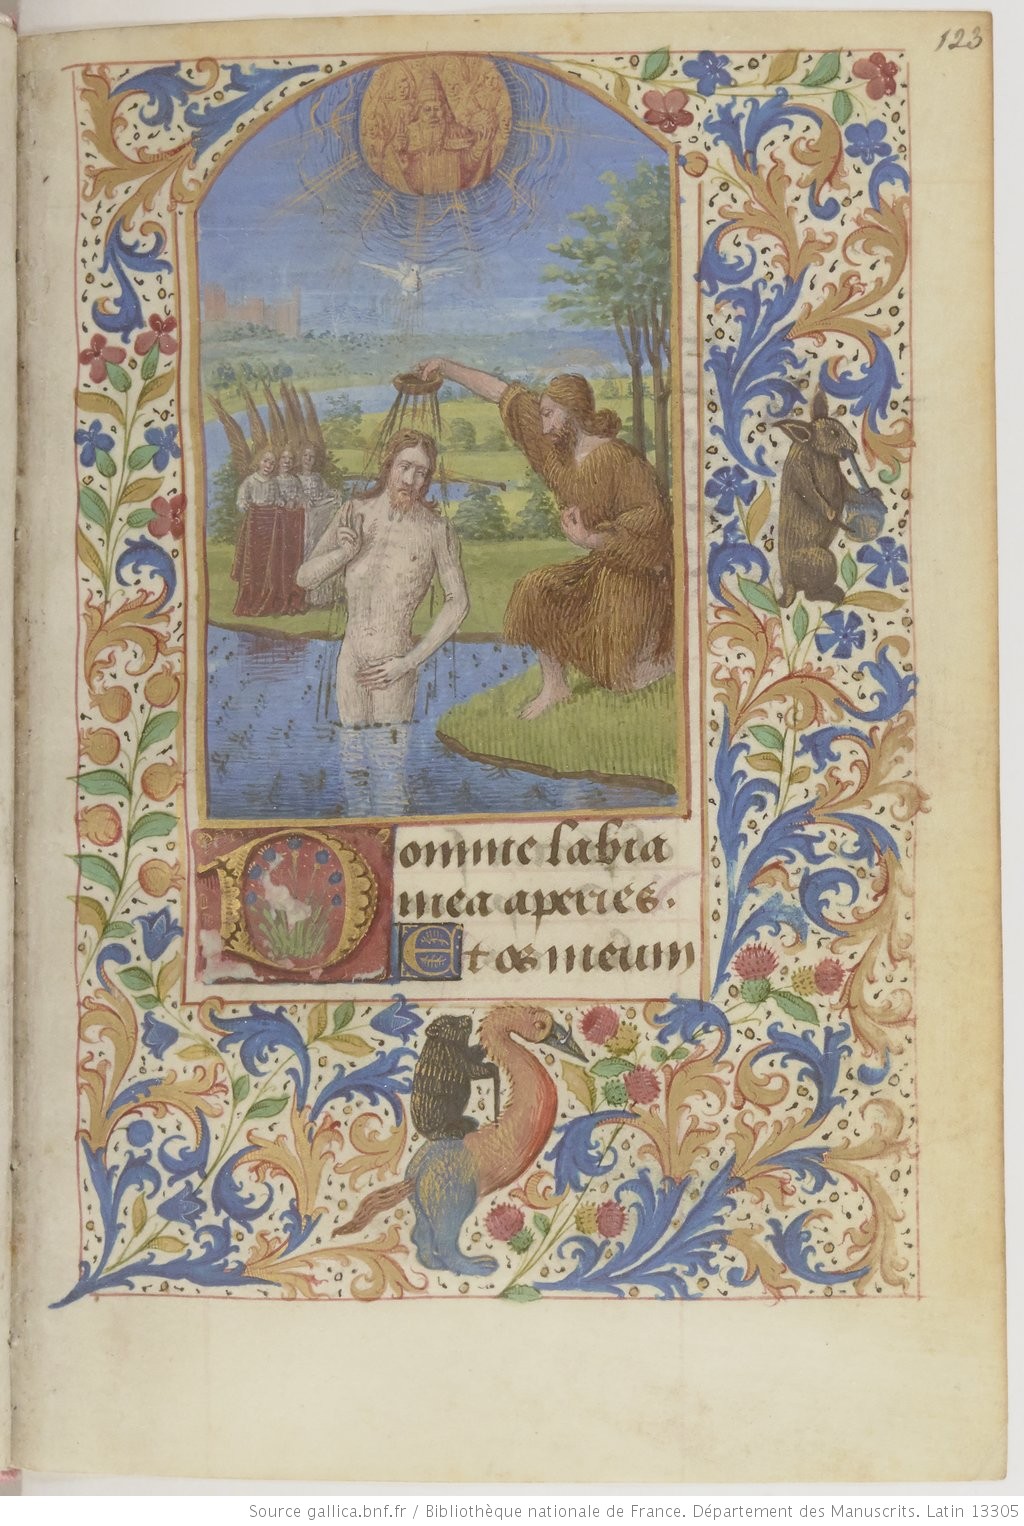 123
Domine labia
mea aperies.
Et os meum
Source gallica.bnf.fr / Bibliothèque nationale de France. Département des Manuscrits. Latin 13305